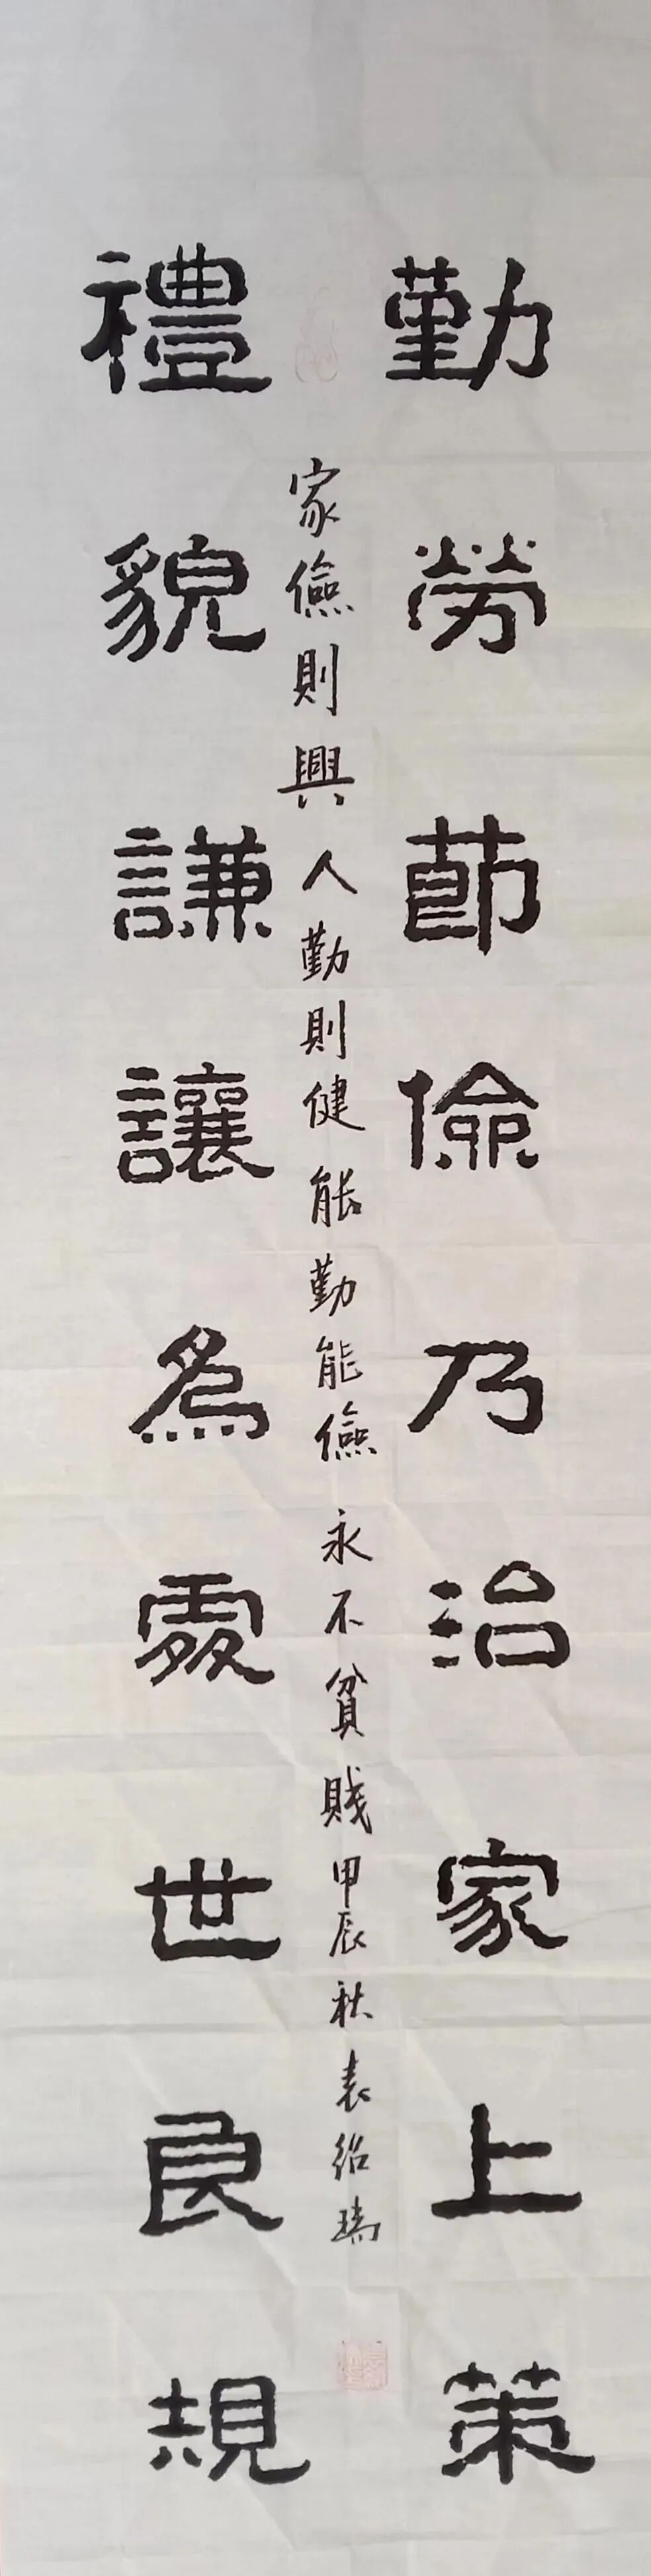 勤勞節儉乃治家上策
家儉則興人勤則健能勤能儉永不貧賤甲辰秋袁紹瑞
禮貌謙讓為處世良規